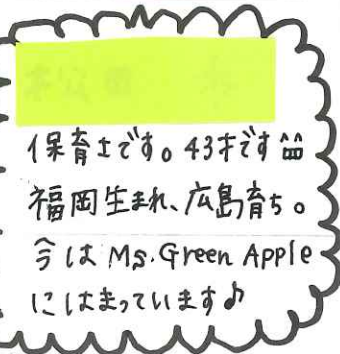 保育士です。43才です
福岡生まれ、広島育ち。
今は Ms. Green Apple
にはまっています♪